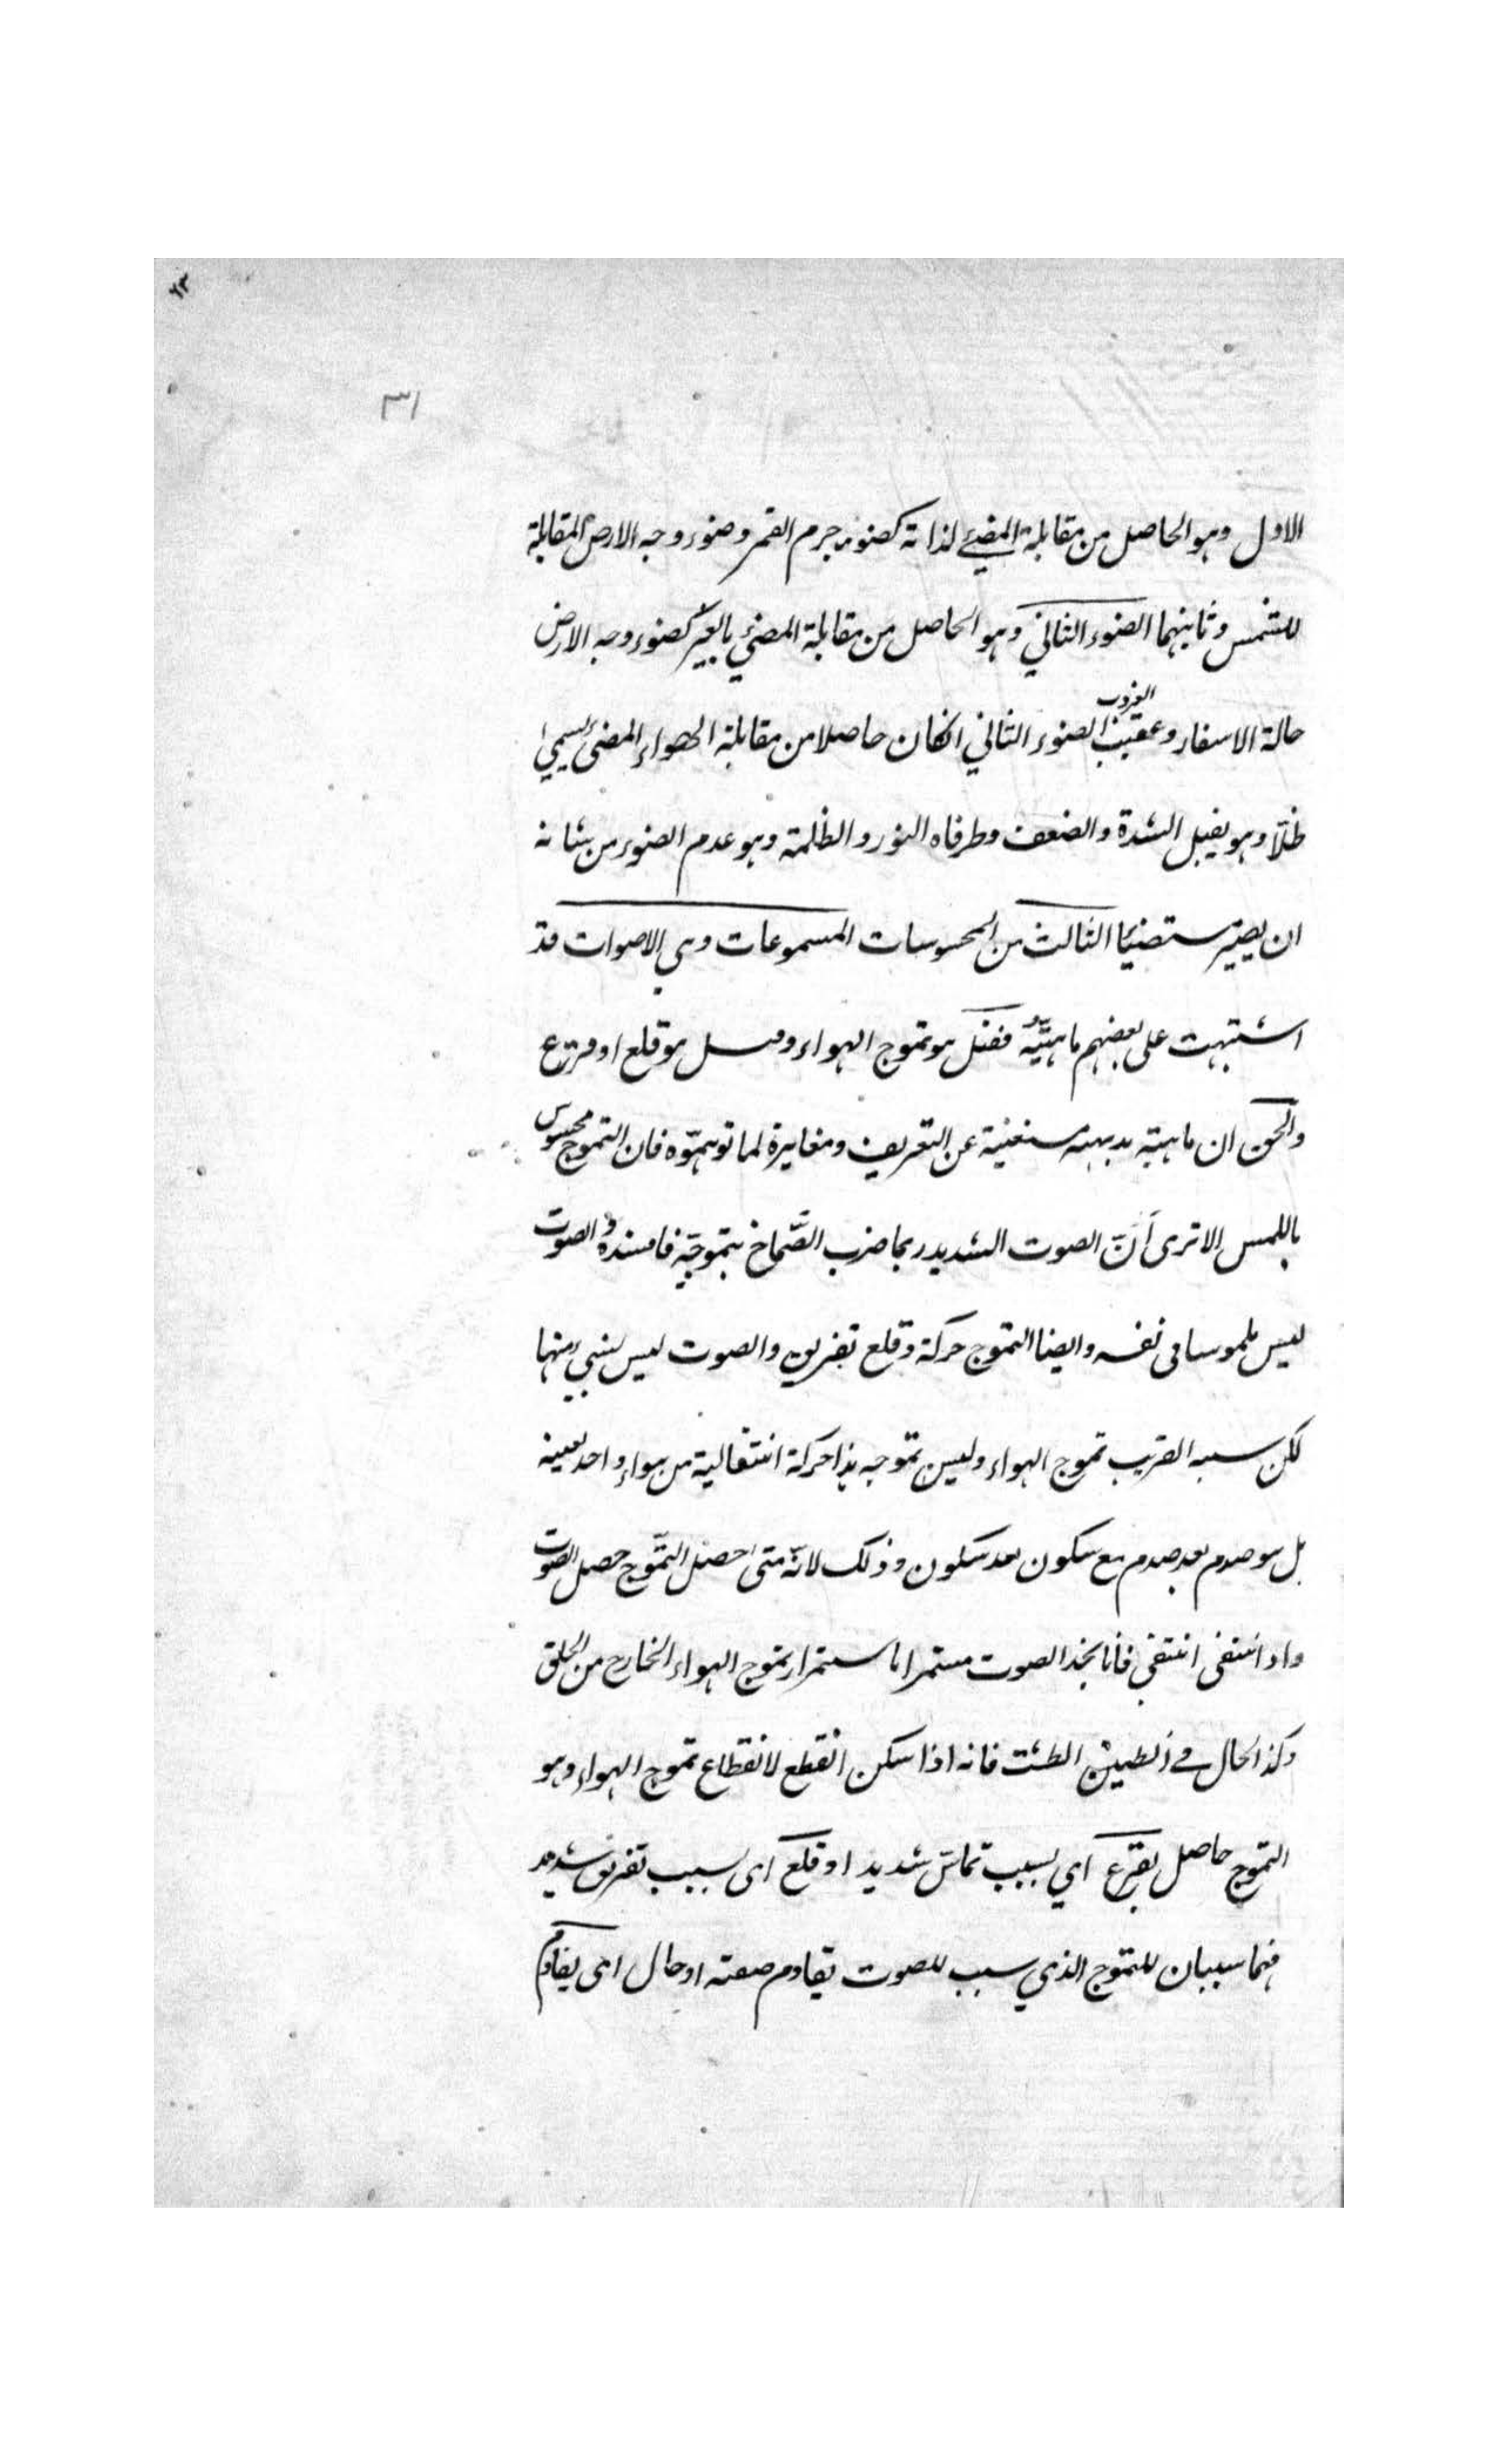 ٦٣
٣١
الاول وهو الحاصل من مقابلة المضيئ لذاته كضوء جرم القمر وضوء وجه الارض المقابلة
للشمس وثانيهما الضوء الثاني وهو الحاصل من مقابلة المضئ بالغير كضوء وجه الارض
حالة الاسفار وعقيب الغروب الضوء الثاني انكان حاصلا من مقابلة الهواء المضئ يسمى
ظلّا وهو يقبل الشدة والضعف وطرفاه النور والظلمة وهو عدم الضوء من شانه
ان يصير مستضيئا الثالث من المحسوسات المسموعات وهي الاصوات قد
اشتبهت على بعضهم ماهيّته فقيل هو تموج الهواء وقيل هو قلع او قرع
والحق ان ماهيته بديهيه مستغنية عن التعريف ومغايرة لما توهمّوه فان التموج محسوس
باللمس الا ترى أنّ الصوت الشديد ربما ضرب الصّماخ بتموجّه فافسده والصوت
ليس ملموسا فى نفسه وايضا التموج حركة وقلع تفريق والصوت ليس بشيئ منها
لكن سببه القريب تموج الهواء وليس تموجه هذا حركة انتقالية من هواء واحد بعينه
بل هو صدم بعد صدم مع سكون بعد سكون وذلك لانّه متى حصل التمّوج حصل الصوت
واذا انتفى انتفي فانا نجد الصوت مستمرا باستمرار تموج الهواء الخارج من الحلق
وكذا الحال في طنين الطشت فانه اذا سكن انقطع لانقطاع تموج الهواء وهو
التموج حاصل بقرع اي بسبب تماسّ شديد او قلع اى بسبب تفريق شديد
فهما سببان للتموج الذي سبب للصوت يقاوم صفته او حال اى يقاوم